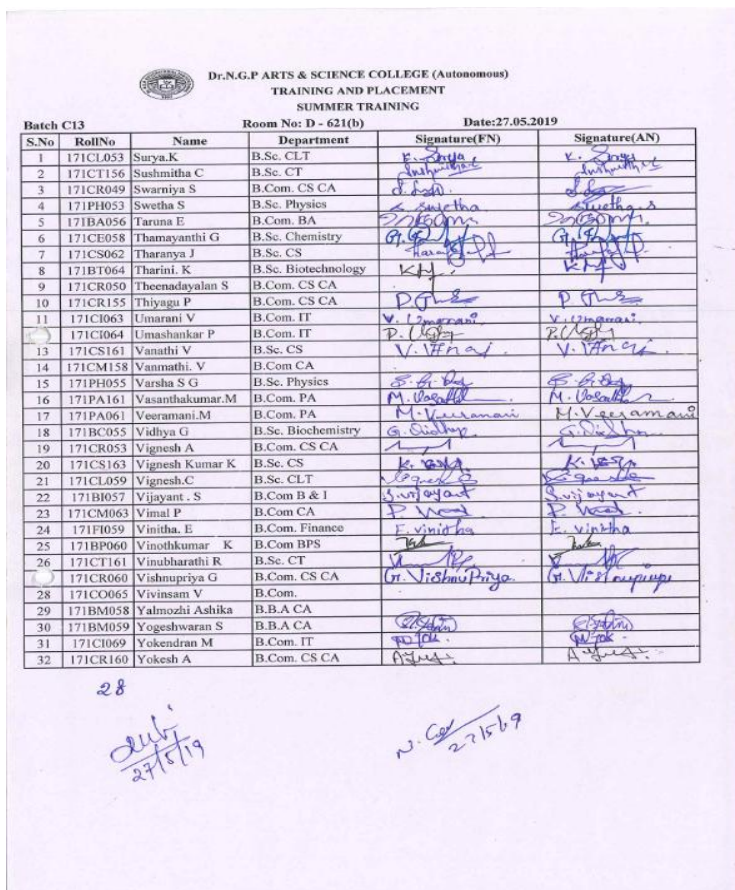 Dr.N.G.P ARTS & SCIENCE COLLEGE (Autonomous)
TRAINING AND PLACEMENT
SUMMER TRAINING
Batch C13 Room No: D - 621(b) Date:27.05.2019
S.No RollNo Name Department Signature(FN) Signature(AN)
1 171CL053 Surya.K B.Sc. CLT K. Surya K. Surya
2 171CT156 Sushmitha C B.Sc. CT
3 171CR049 Swarniya S B.Com. CS CA
4 171PH053 Swetha S B.Sc. Physics S. Swetha Swetha. S
5 171BA056 Taruna E B.Com. BA
6 171CE058 Thamayanthi G B.Sc. Chemistry
7 171CS062 Tharanya J B.Sc. CS
8 171BT064 Tharini. K B.Sc. Biotechnology
9 171CR050 Theenadayalan S B.Com. CS CA
10 171CR155 Thiyagu P B.Com. CS CA
11 171CI063 Umarani V B.Com. IT V. Umarani. V. Umarani.
171CI064 Umashankar P B.Com. IT
13 171CS161 Vanathi V B.Sc. CS
14 171CM158 Vanmathi. V B.Com CA
15 171PH055 Varsha S G B.Sc. Physics
16 171PA161 Vasanthakumar.M B.Com. PA
17 171PA061 Veeramani.M B.Com. PA M. Veeramani M. Veeramani
18 171BC055 Vidhya G B.Sc. Biochemistry G. Vidhya
19 171CR053 Vignesh A B.Com. CS CA
20 171CS163 Vignesh Kumar K B.Sc. CS
21 171CL059 Vignesh.C B.Sc. CLT
22 171BI057 Vijayant . S B.Com B & I S. vijayant S. vijayant
23 171CM063 Vimal P B.Com CA
24 171FI059 Vinitha. E B.Com. Finance E. vinitha E. vinitha
25 171BP060 Vinothkumar K B.Com BPS
26 171CT161 Vinubharathi R B.Sc. CT
171CR060 Vishnupriya G B.Com. CS CA G. Vishnu Priya. G. Vishnupriya
28 171CO065 Vivinsam V B.Com.
29 171BM058 Yalmozhi Ashika B.B.A CA
30 171BM059 Yogeshwaran S B.B.A CA
31 171CI069 Yokendran M B.Com. IT
32 171CR160 Yokesh A B.Com. CS CA
28
27/5/19 27/5/19